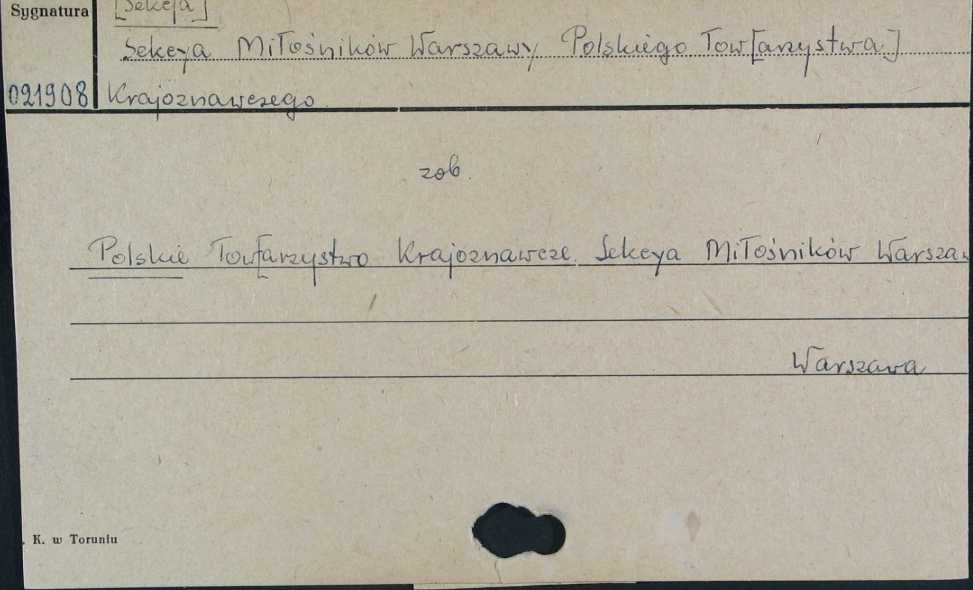 Sygnatura [Sekcja]
Sekcya Miłośników Warszawy Polskiego Tow[arzystwa]
021908 Krajoznawczego
zob.
Polskie Tow[arzystwo Krajoznawcze. Sekcya Miłośników Warszaw
Warszawa
. K. w Toruniu